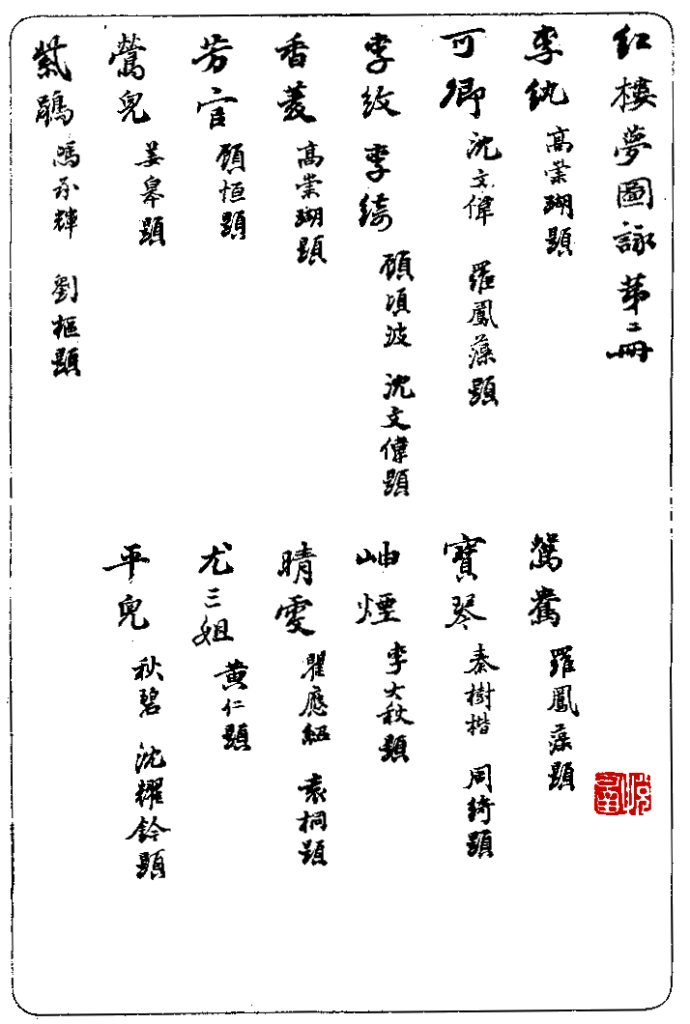 紅樓夢圖詠第二冊
李紈 高崇瑚題
鴛鴦 羅鳳藻題
可卿 沈文偉 羅鳳藻題
寶琴 秦樹楷 周綺題
李紋 李綺 顧 波 沈文偉題
岫煙 李大秋題
香菱 高崇瑚題
晴雯 瞿應紹 袁桐題
芳官 顧恒題
尤三姐 黃仁題
鶯兒 姜皋題
平兒 秋碧 沈耀鈴題
紫鵑 馮承輝 劉樞題